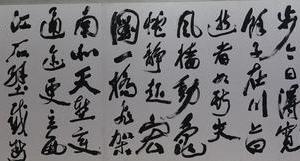 步今日得寬
餘子在川上曰
逝者如斯夫
風檣動龜
蛇靜起宏
圖一橋飛架
南北天塹變
通途更立西
江石壁截斷